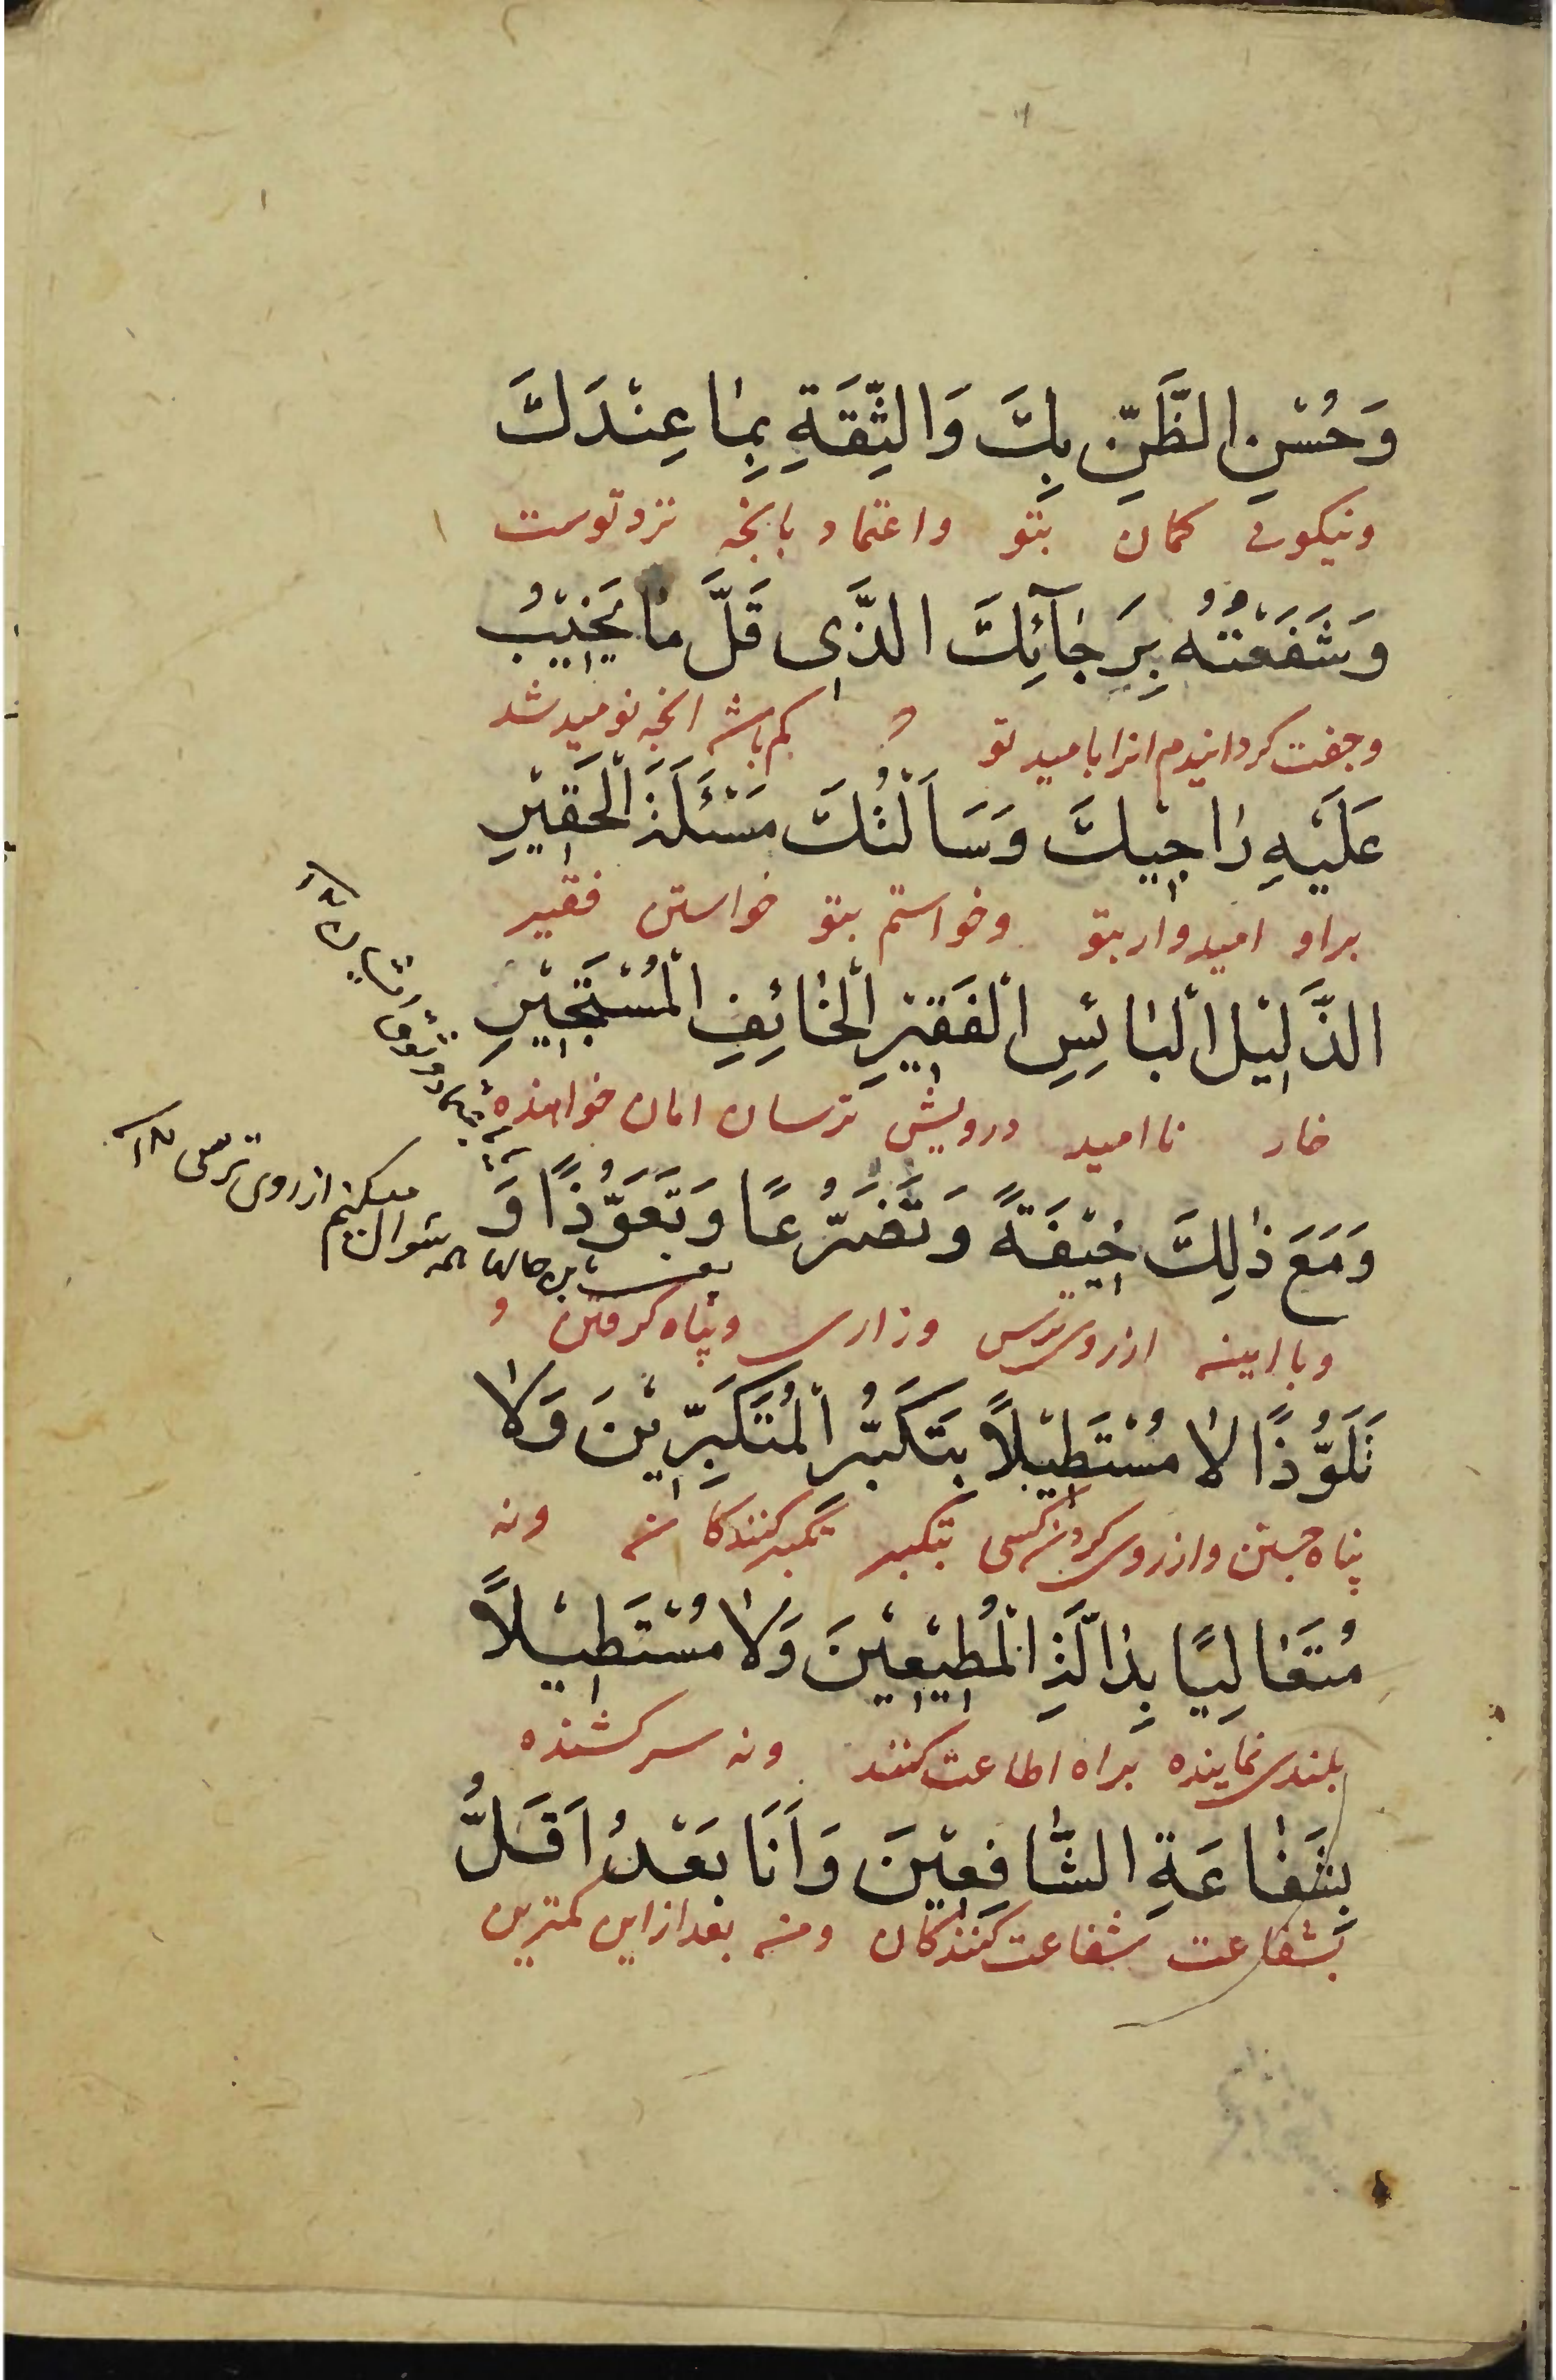 وَحُسْنِ الظَّنِّ بِكَ وَالثِّقَةِ بِمٰا عِنْدَكَ
ونیکویی کمان بتو واعتماد بانچه نزد توست
وَشَفَعْتُهُ بِرَجٰآئِكَ الَّذِى قَلَّ مٰا يَخِيْبُ
وجفت کردانیدم انرا بامید تو کم باشد انچه نومید شد
عَلَيْهِ رٰاجِيْكَ وَسَاَلْتُكَ مَسْئَلَةَ الْحَقِيْرِ
براو امیدوار بتو وخواستم بتو خواستن فقیر
الذَّلِيْلِ الْبٰائِسِ الْفَقِيْرِ الْخٰائِفِ الْمُسْتَجِيْرِ
خار ناامید درویش ترسان امان خواهنده
وَمَعَ ذٰلِكَ خِيْفَةً وَتَضَرُّعًا وَتَعَوُّذًا وَ
وباایینه ازروی ترس وزاری وپناه کرفتن و
تَلَوُّذًا لاٰ مُسْتَطِيْلاً بِتَكَبُّرِ الْمُتَكَبِّرِيْنَ وَلاٰ
پناه جستن وازروی کردن کسی بتکبر تکبر کنندکان ونه
مُتَعٰالِيًا بِدٰالَّةِ الْمُطِيْعِيْنَ وَلاٰ مُسْتَطِيْلاً
بلندی نماینده براه اطاعت کنند ونه سرکشنده
بِشَفٰاعَةِ الشّٰافِعِيْنَ وَاَنَا بَعْدُ اَقَلُّ
بشفاعت شفاعت کنندکان ومن بعد ازاین کمترین
یعنی باین حالها همه سئوال میکنم ازروی ترس